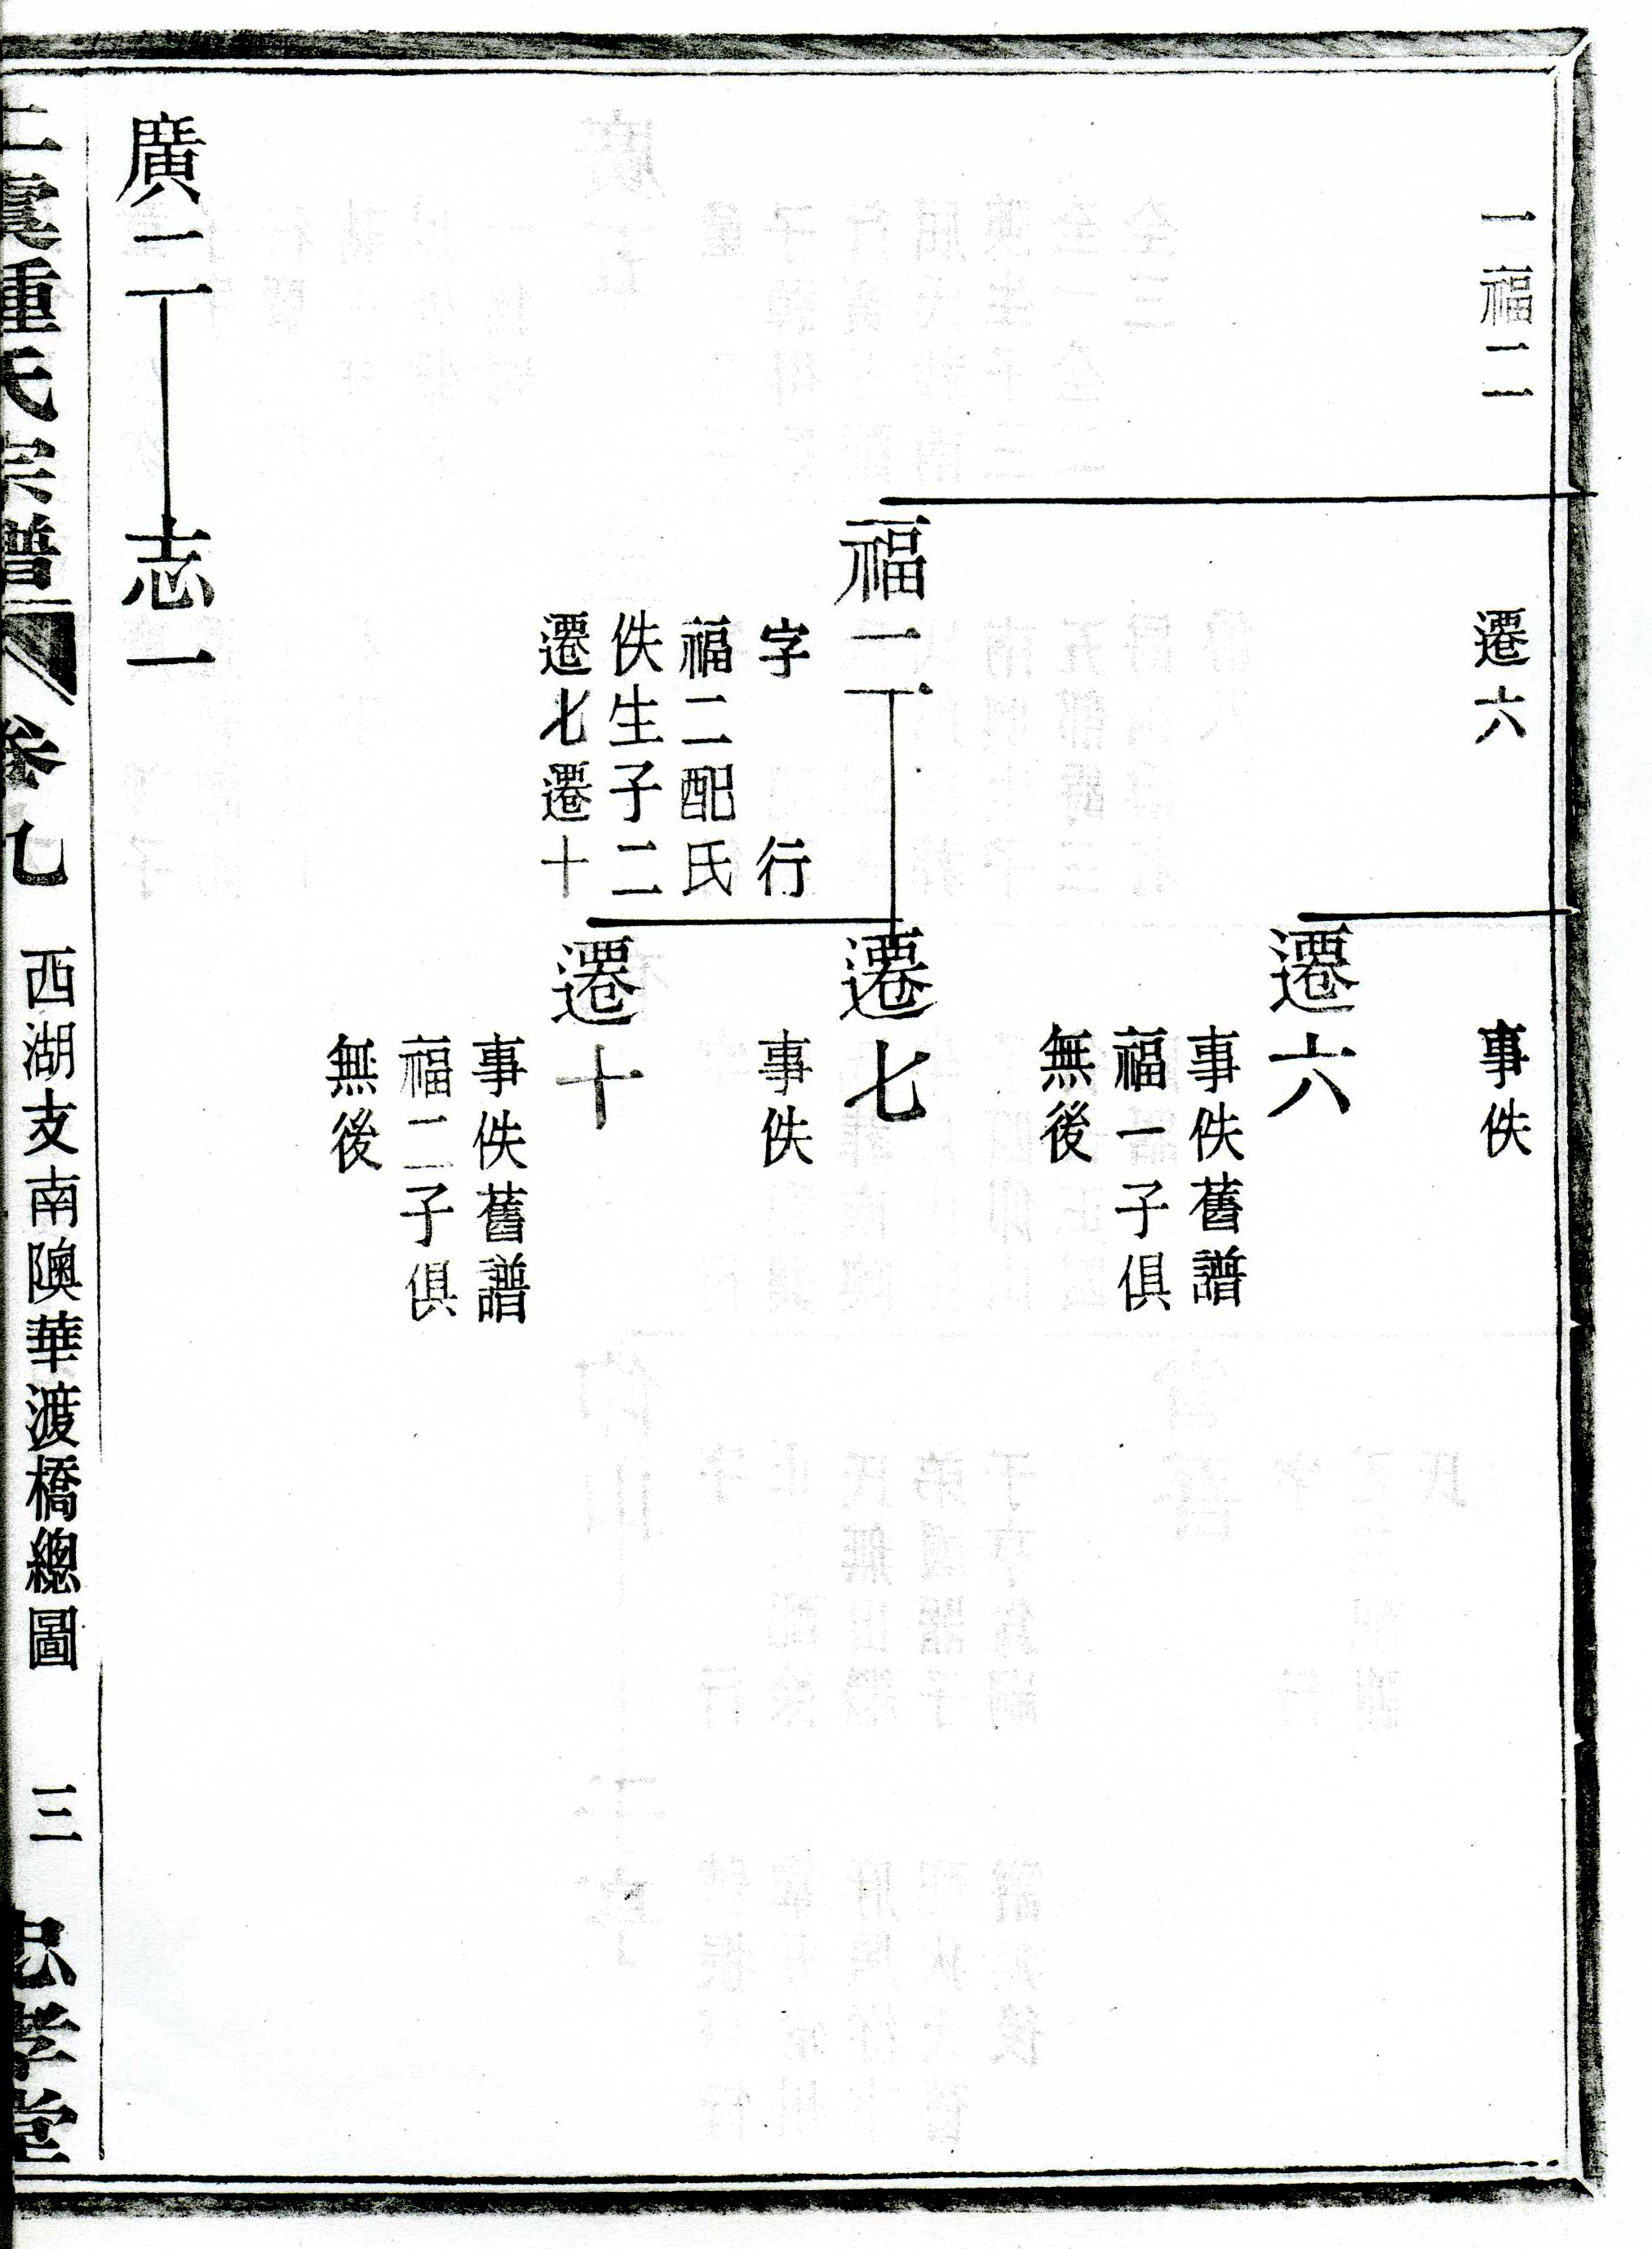 一福二
遷六
事佚
遷六
事佚舊譜
福一子俱
無後
福二
字 行
福二配氏
佚生子二
遷七遷十
遷七
事佚
遷十
事佚舊譜
福二子俱
無後
廣二
志一
氏宗譜
卷
西湖支南隩華渡橋總圖
三
忠孝堂